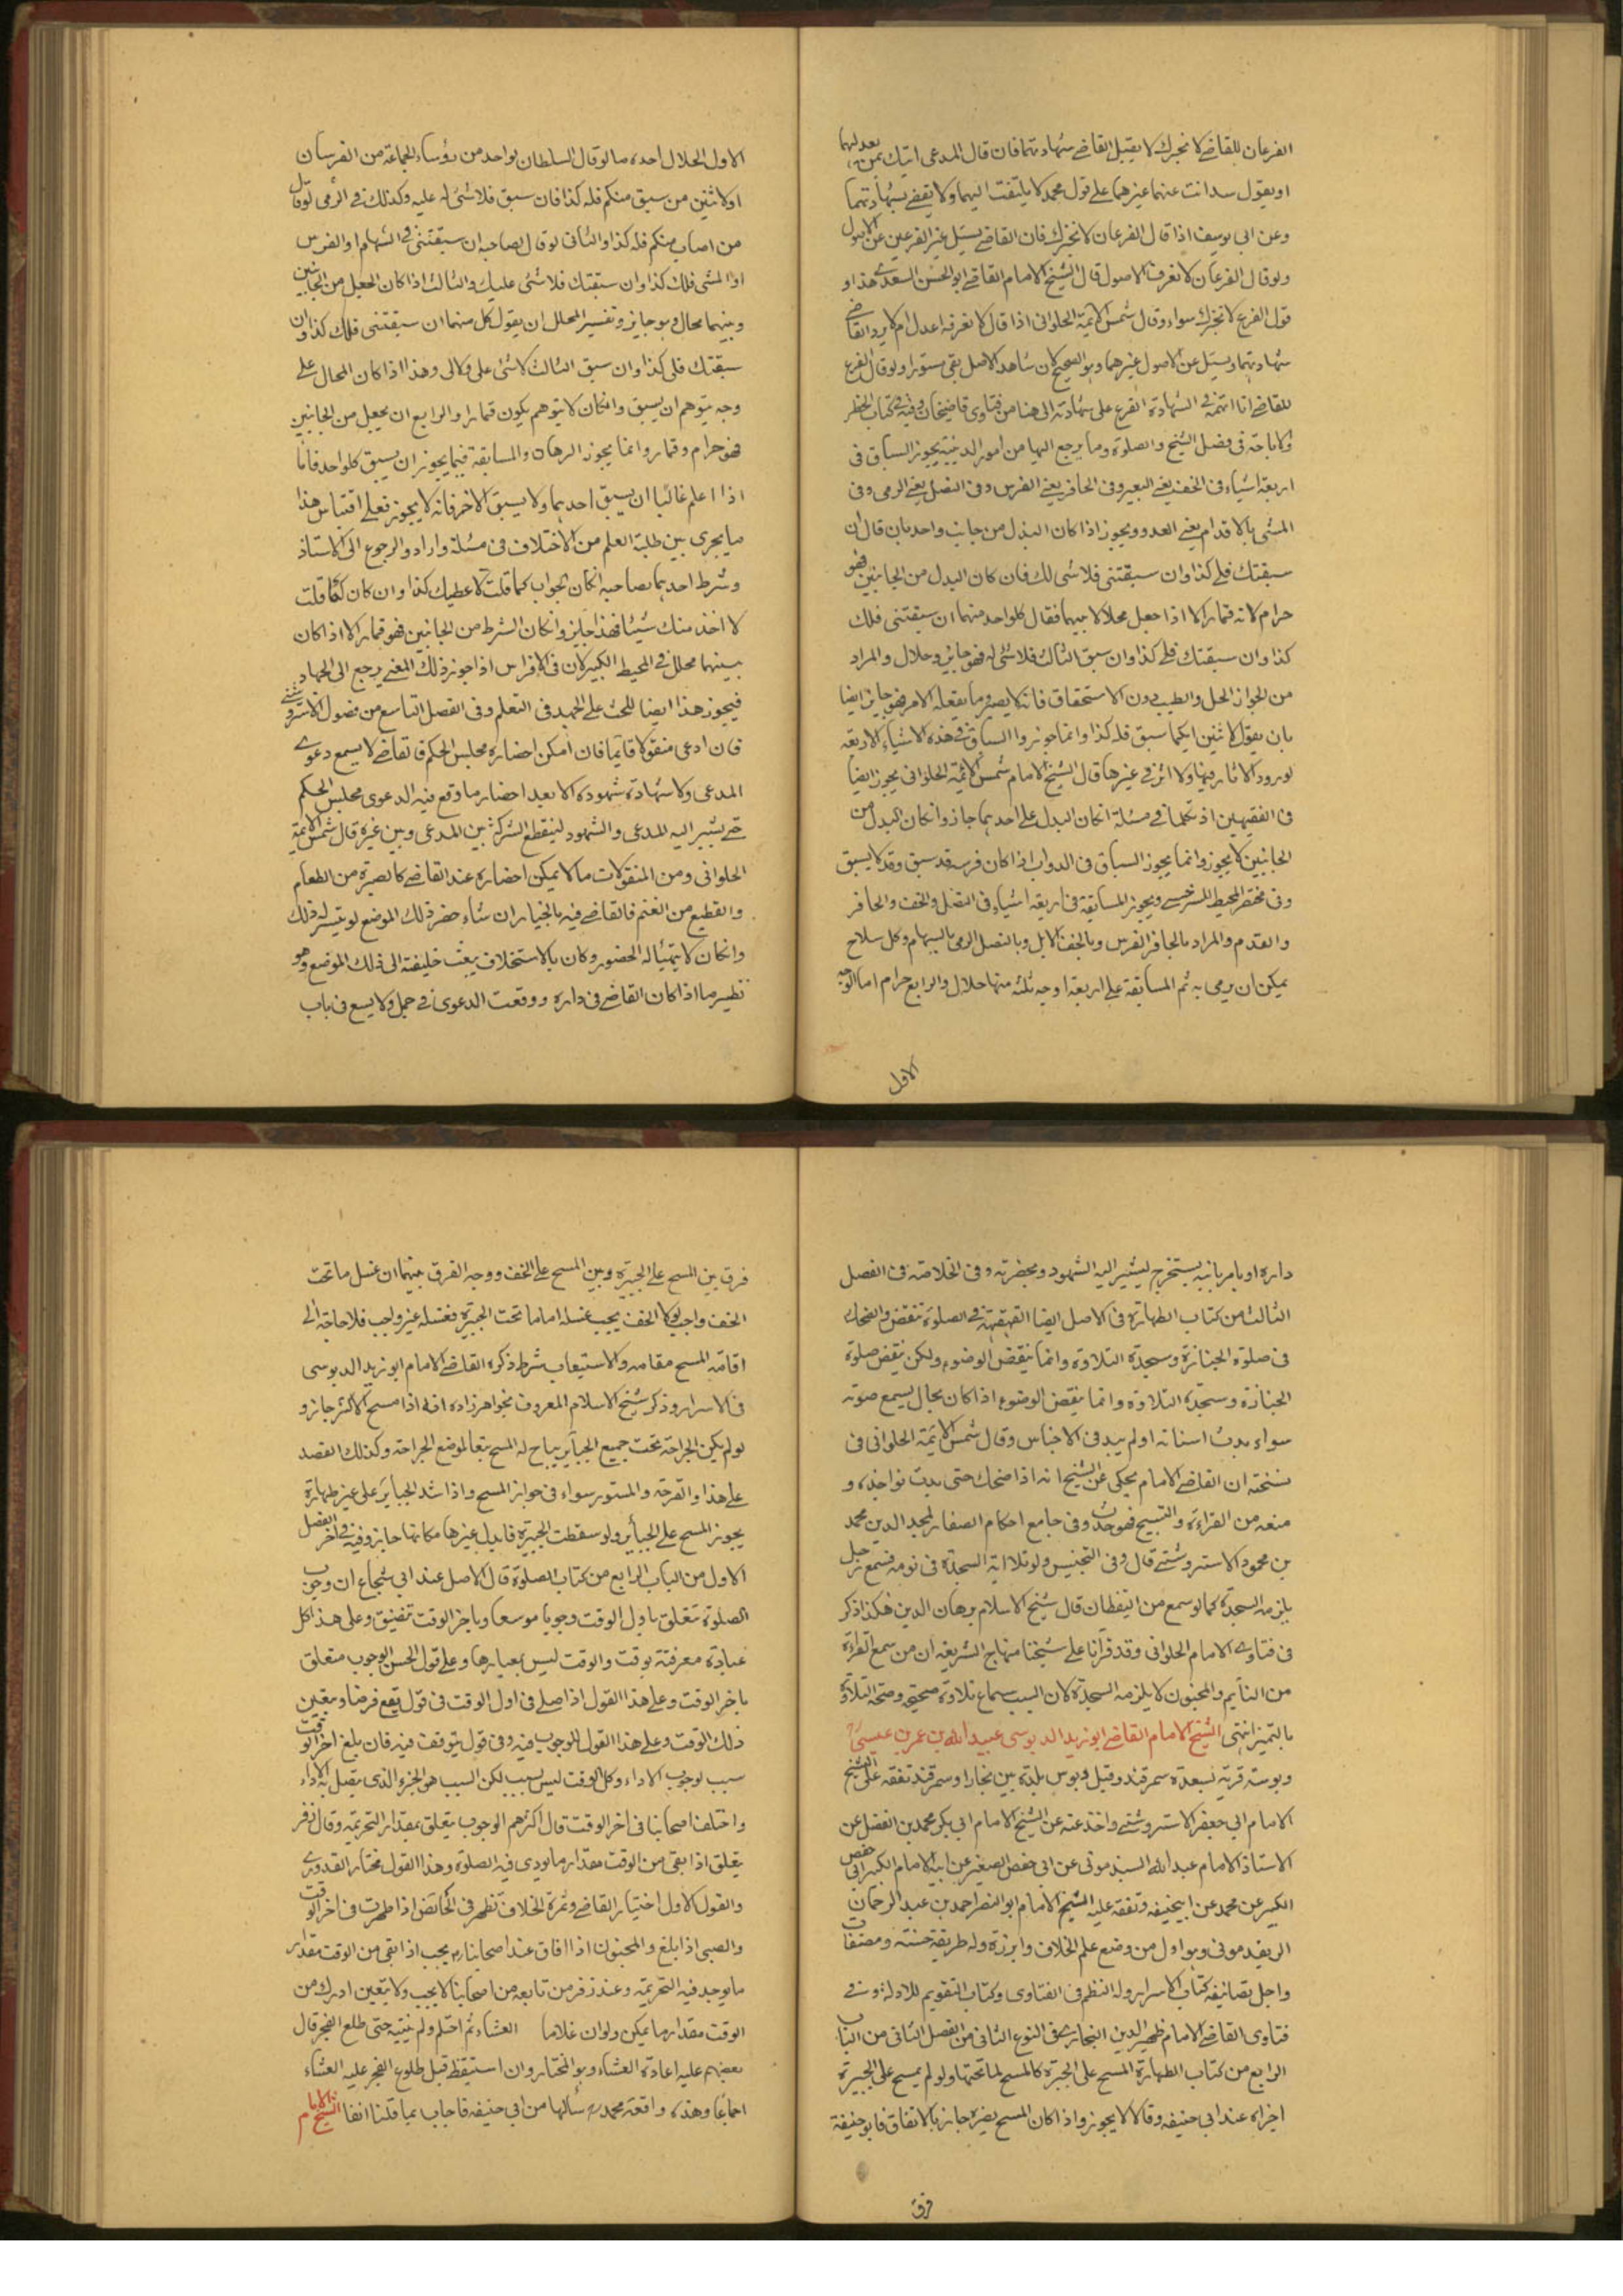 الفرعان للقاضى لا نخبرك لا يقبل القاضى شهادتهما فان قال المدعى اتيك بمن يعدلهما
او يقول سدانت عنهما غيرهما على قول محمد لا يلتفت اليهما ولا يقضى بشهادتهما
وعن ابى يوسف اذا قال الفرعان لا نخبرك فان القاضى يسئل غير الفرعين عن الاصول
ولو قال الفرعان لا نعرف الاصول قال الشيخ الامام القاضى ابو الحسن السعدى هذا و
قول الفرع لا نخبرك سواء وقال شمس الايمة الحلوانى اذا قال لا نعرفه اعدل ام لا يرد القاضى
شهادتهما ويسئل عن الاصول غيرهما وهو الصحيح لان شاهد الاصل بقى مستورا ولو قال الفرع
للقاضى انا اتهمه فى الشهادة الفرع على شهادته الى هنا من فتاوى قاضيخان وفيه فى كتاب الحظر
والاباحة فى فصل التسبيح والصلوة وما يرجع اليها من امور الدينية يجوز السباق فى
اربعة اشياء فى الخف يعنى البعير وفى الحافر يعنى الفرس وفى النصل يعنى الرمى وفى
المشى بالاقدام يعنى العدو ويجوز اذا كان البدل من جانب واحد بان قال ان
سبقتك فلى كذا وان سبقتنى فلا شى لك فان كان البدل من الجانبين فهو
حرام لانه قمار الا اذا جعل محللا بينهما فقال كل واحد منهما ان سبقتنى فلك
كذا وان سبقتك فلى كذا وان سبق الثالث فلا شئ له فهو جايز وحلال والمراد
من الجواز الحل والطيب دون الاستحقاق فانه لا يصير وما يفعله الامر فهو جايز ايضا
بان يقول لاثنين ايكما سبق فله كذا وانما جوزوا السباق فى هذه الاشياء الاربعة
لورود الاثار فيها ولا اثر فى غيرها قال الشيخ الامام شمس الائمة الحلوانى يجوز ايضا
فى الفقيهين اذ تكلما فى مسئلة ان كان البدل على احدهما جاز وان كان البدل من
الجانبين لا يجوز وانما يجوز السباق فى الدواب اذا كان فرسه قد سبق وقد لا يسبق
وفى مختصر المحيط للسرخسى ويجوز المسابقة فى اربعة اشياء فى النصل والخف والحافر
والقدم والمراد بالحافر الفرس وبالخف الابل وبالنصل الرمى بالسهام وكل سلاح
يمكن ان يرمى به ثم المسابقة على اربعة اوجه ثلثه منها حلال والرابع حرام اما الوجه
الاول
الاول الحلال احده ما لو قال السلطان لواحد من رؤساء الجماعة من الفرسان
او لاثنين من سبق منكم فله كذا فان سبق فلا شئ له عليه وكذلك فى الرمى لو قال
من اصاب منكم فله كذا والثانى لو قال لصاحبه ان سبقتنى فى السهام او الفرس
او المشى فلك كذا وان سبقتك فلا شئ عليك والثالث اذا كان الجعل من الجانبين
وبينهما محال وهو جايز وتفسير المحلل ان يقول كل منهما ان سبقتنى فلك كذا وان
سبقتك فلى كذا وان سبق الثالث لا شئ على ولا لى وهذا اذا كان المحال على
وجه يتوهم ان يسبق وان كان لا يتوهم يكون قمارا والرابع ان يجعل من الجانبين
فهو حرام وقمار وانما يجوز الرهان والمسابقة فيما يجوز ان يسبق كل واحد فاما
اذا اعلم غالبا ان يسبق احدهما ولا يسبق الاخر فانه لا يجوز فعلى اقتباس هذا
ما يجرى بين طلبة العلم من الاختلاف فى مسئلة واراد والرجوع الى الاستاذ
وشرط احدهما لصاحبه ان كان الجواب كما قلت لاعطيك كذا وان كان كما قلت
لا اخذ منك شيئا فهذا جايز وان كان الشرط من الجانبين فهو قمار الا اذا كان
بينهما محلل فى المحيط الكبير لان فى الافراس اذا جوز ذلك المعنى يرجع الى الجهاد
فيجوز هذا ايضا للحث على الجهد فى التعلم وفى الفصل التاسع من فصول الاستروشنى
فان ادعى منقولا قايما فان امكن احضاره مجلس الحكم فالقاضى لا يسمع دعوى
المدعى ولا شهادة شهوده الا بعد احضار ما وقع فيه الدعوى مجلس الحكم
حتى يشير اليه المدعى والشهود لينقطع الشركة بين المدعى وبين غيره قال شمس الايمة
الحلوانى ومن المنقولات ما لا يمكن احضاره عند القاضى كالصبرة من الطعام
والقطيع من الغنم فالقاضى فيه بالخيار ان شاء حضر ذلك الموضع لو تيسر له ذلك
وان كان لا يتهيأ له الحضور وكان بالاستخلاف يبعث خليفته الى ذلك الموضع وهو
نظير ما اذا كان القاضى فى داره ووقعت الدعوى فى جمل ولا يسع فى باب
داره او يامر بانيه يستخرج ليشير اليه الشهود وبحضرته وفى الخلاصة فى الفصل
الثالث من كتاب الطهارة فى الاصل ايضا القهقهة فى الصلوة تنقض والضحك
فى صلوة الجنازة وسجدة التلاوة وانما ينقض الوضوء ولكن ينقض صلوة
الجنازة وسجدة التلاوة وانما ينقض الوضوء اذا كان بحال يسمع صوته
سواء بدت اسنانه او لم يبد فى الاجناس وقال شمس الائمة الحلوانى فى
نسخته ان القاضى الامام يحكى عن الشيخ انه اذا ضحك حتى بدت نواجذه و
منعه من القراءة والتسبيح فهو حدث وفى جامع احكام الصغار لمجد الدين محمد
بن محمود الاستروشنى قال وفى التجنيس ولو تلا اية السجدة فى نومه فسمع رجل
يلزمه السجدة كما لو سمع من اليقظان قال شيخ الاسلام برهان الدين هكذا ذكر
فى فتاوى الامام الحلوانى وقد قرأنا على شيخنا منهاج الشريعة ان من سمع القراءة
من النايم والمجنون لا يلزمه السجدة لان السبب سماع تلاوة صحيحة وصحة التلاوة
بالتمييز انتهى الشيخ الامام القاضى ابو زيد الدبوسى عبيد الله بن عمر بن عيسى
ودبوسة قرية بسعدة سمرقند وقيل دبوس بلدة بين بخارا وسمرقند تفقه على الشيخ
الامام ابى جعفر الاستروشنى واخذ عنه عن الشيخ الامام ابى بكر محمد بن الفضل عن
الاستاذ الامام عبد الله السبذمونى عن ابى حفص الصغير عن ابيه الامام الكبير ابى حفص
الكبير عن محمد عن ابيحنيفه وتفقه عليه الشيخ الامام ابو النصر احمد بن عبد الرحمان
الريغدمونى وهو اول من وضع علم الخلاف وابرزه وله طريقة حسنة ومصنفات
واجل تصانيفه كتاب الاسرار وله النظم فى الفتاوى وكتاب التقويم للادلة وفى
فتاوى القاضى الامام ظهير الدين البخارى فى النوع الثانى من الفصل الثانى من الباب
الرابع من كتاب الطهارة المسح على الجبيرة كالمسح لما تحتها ولو لم يمسح على الجبيرة
اجزاه عند ابى حنيفه وقالا لا يجوز واذا كان المسح يضره جاز بالاتفاق فابو حنيفة
فرق
فرق بين المسح على الجبيرة وبين المسح على الخف ووجه الفرق بينهما ان غسل ما تحت
الخف واجب لولا الخف يجب غسله اما ما تحت الجبيرة فغسله غير واجب فلا حاجة الى
اقامة المسح مقامه والاستيعاب شرط ذكره القاضى الامام ابو زيد الدبوسى
فى الاسرار وذكر شيخ الاسلام المعروف بخواهرزاده انه اذا مسح الاكثر جاز و
لو لم يكن الجراحة تحت جميع الجباير يباح له المسح تبعا لموضع الجراحة وكذلك الفصد
على هذا والقرحة والمستور سواء فى جواز المسح واذا شد الجباير على غير طهارة
يجوز المسح على الجبائر ولو سقطت الجبيرة فابدل غيرها مكانها جاز وفيه فى اخر الفصل
الاول من الباب الرابع من كتاب الصلوة قال الاصل عند ابى شجاع ان وجوب
الصلوة تتعلق باول الوقت وجوبا موسعا وباخر الوقت تضيق وعلى هذا كل
عبادة معرفتة بوقت والوقت ليس بمعيارها وعلى قول الحسن الوجوب متعلق
باخر الوقت وعلى هذا القول اذا صلى فى اول الوقت فى قول يقع فرضا ويتعين
ذلك الوقت وعلى هذا القول للوجوب فيه وفى قول يتوقف فيه فان بلغ اخر الوقت
سبب لوجوب الاداء وكل الوقت ليس بسبب لكن السبب هو الجزء الذى يتصل به الاداء
واختلف اصحابنا فى اخر الوقت قال اكثرهم الوجوب يتعلق بمقدار التحريمة وقال زفر
يتعلق اذا بقى من الوقت مقدار ما يودى فيه الصلوة وهذا القول مختار القدورى
والقول الاول اختيار القاضى وثمرة الخلاف تظهر فى الحائض اذا طهرت فى اخر الوقت
والصبى اذا بلغ والمجنون اذا افاق عند اصحابنا يجب اذا بقى من الوقت مقدار
ما يوجد فيه التحريمة وعند زفر من تابعه من اصحابنا لا يجب ولا يتعين ادرك من
الوقت مقدار ما يمكن ولو ان غلاما العشاء ثم احتلم ولم ينتبه حتى طلع الفجر قال
بعضهم عليه اعادة العشاء وهو المختار وان استيقظ قبل طلوع الفجر عليه العشاء
اجماعا وهذه واقعة محمد سألها من ابى حنيفه فاجاب بما قلنا انفا الشيخ الامام